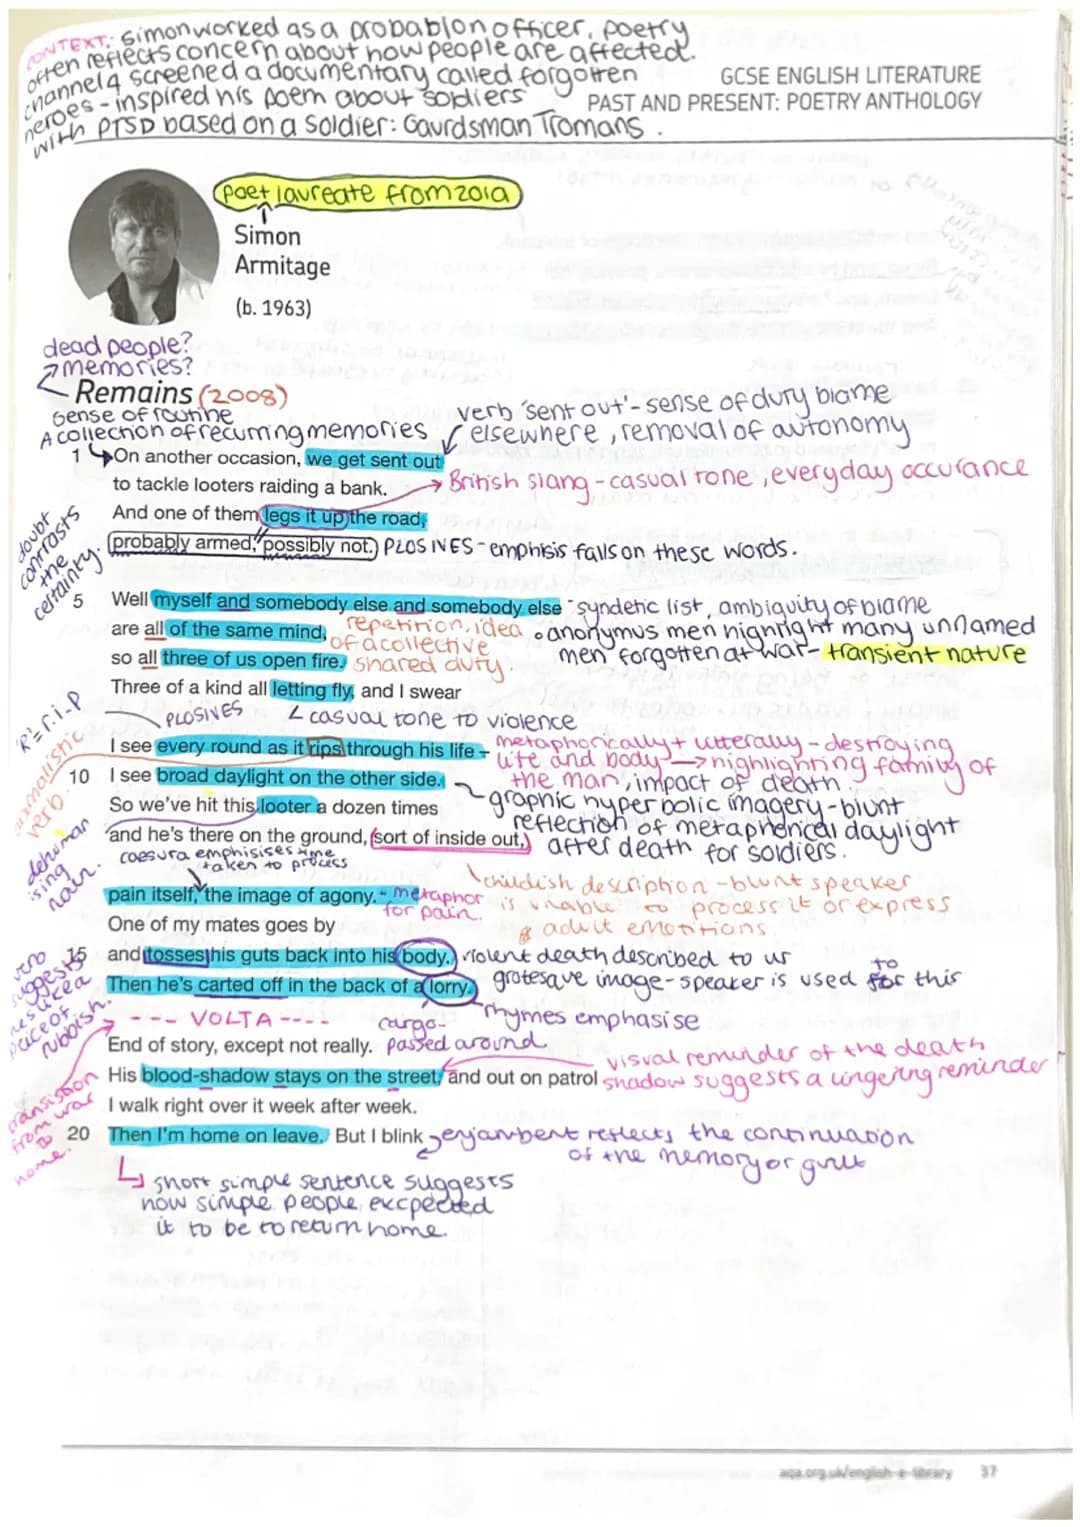 CONTEXT: Simon worked as a probablon officer, poetry
often reflects concern about how people are affected.
channel 4 screened a documentary called forgotten
heroes - inspired his poem about soldiers
with PTSD based on a Soldier: Gaurdsman Tromans.
GCSE ENGLISH LITERATURE
PAST AND PRESENT: POETRY ANTHOLOGY
poet laureate from 2019
Simon
Armitage
(b. 1963)
dead people?
memories?
Remains (2008)
sense of routine
A collection of recurring memories
verb 'sent out' - sense of duty blame
elsewhere, removal of autonomy
1 On another occasion, we get sent out
to tackle looters raiding a bank.
British slang - casual tone, everyday occurance
And one of them legs it up the road,
probably armed, possibly not.
PLOSIVES - emphisis falls on these words.
doubt
contrasts
the
certainty.
5 Well myself and somebody else and somebody else
syndetic list, ambiguity of blame
are all of the same mind,
repetition, idea
of a collective
shared duty.
anonymus men highlight many unnamed
men forgotten at war - transient nature
so all three of us open fire.
Three of a kind all letting fly, and I swear
PLOSIVES
casual tone to violence
'R' = r.i.p
I see every round as it rips through his life –
metaphorically + litterally - destroying
life and body → highlighting family of
the man, impact of death.
animalistic
verb.
10 I see broad daylight on the other side.
graphic hyperbolic imagery - blunt
reflection of metaphorical daylight
after death for soldiers.
So we've hit this looter a dozen times
and he's there on the ground, sort of inside out,
dehuman
ising
noun.
caesura emphisises time
taken to process
childish description - blunt speaker
is unable to process it or express
adult emotitions.
pain itself, the image of agony.
- metaphor
for pain.
One of my mates goes by
and tosses his guts back into his body.
violent death described to us
Then he's carted off in the back of a lorry.
grotesque image - speaker is used to for this
rhymes emphasise
verb
suggests
he's like a
peice of
rubbish.
---- VOLTA ----
cargo-
passed around
End of story, except not really.
visual reminder of the death
shadow suggests a lingering reminder
His blood-shadow stays on the street, and out on patrol
I walk right over it week after week.
transison
from war
to
home.
20 Then I'm home on leave. But I blink
enjambent reflects the continuation
of the memory or guilt
short simple sentence suggests
how simple people excpected
it to be to return home.
aqa.org.uk/english-e-library 37